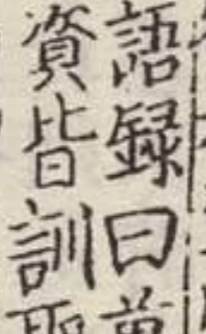 語録曰
資皆訓